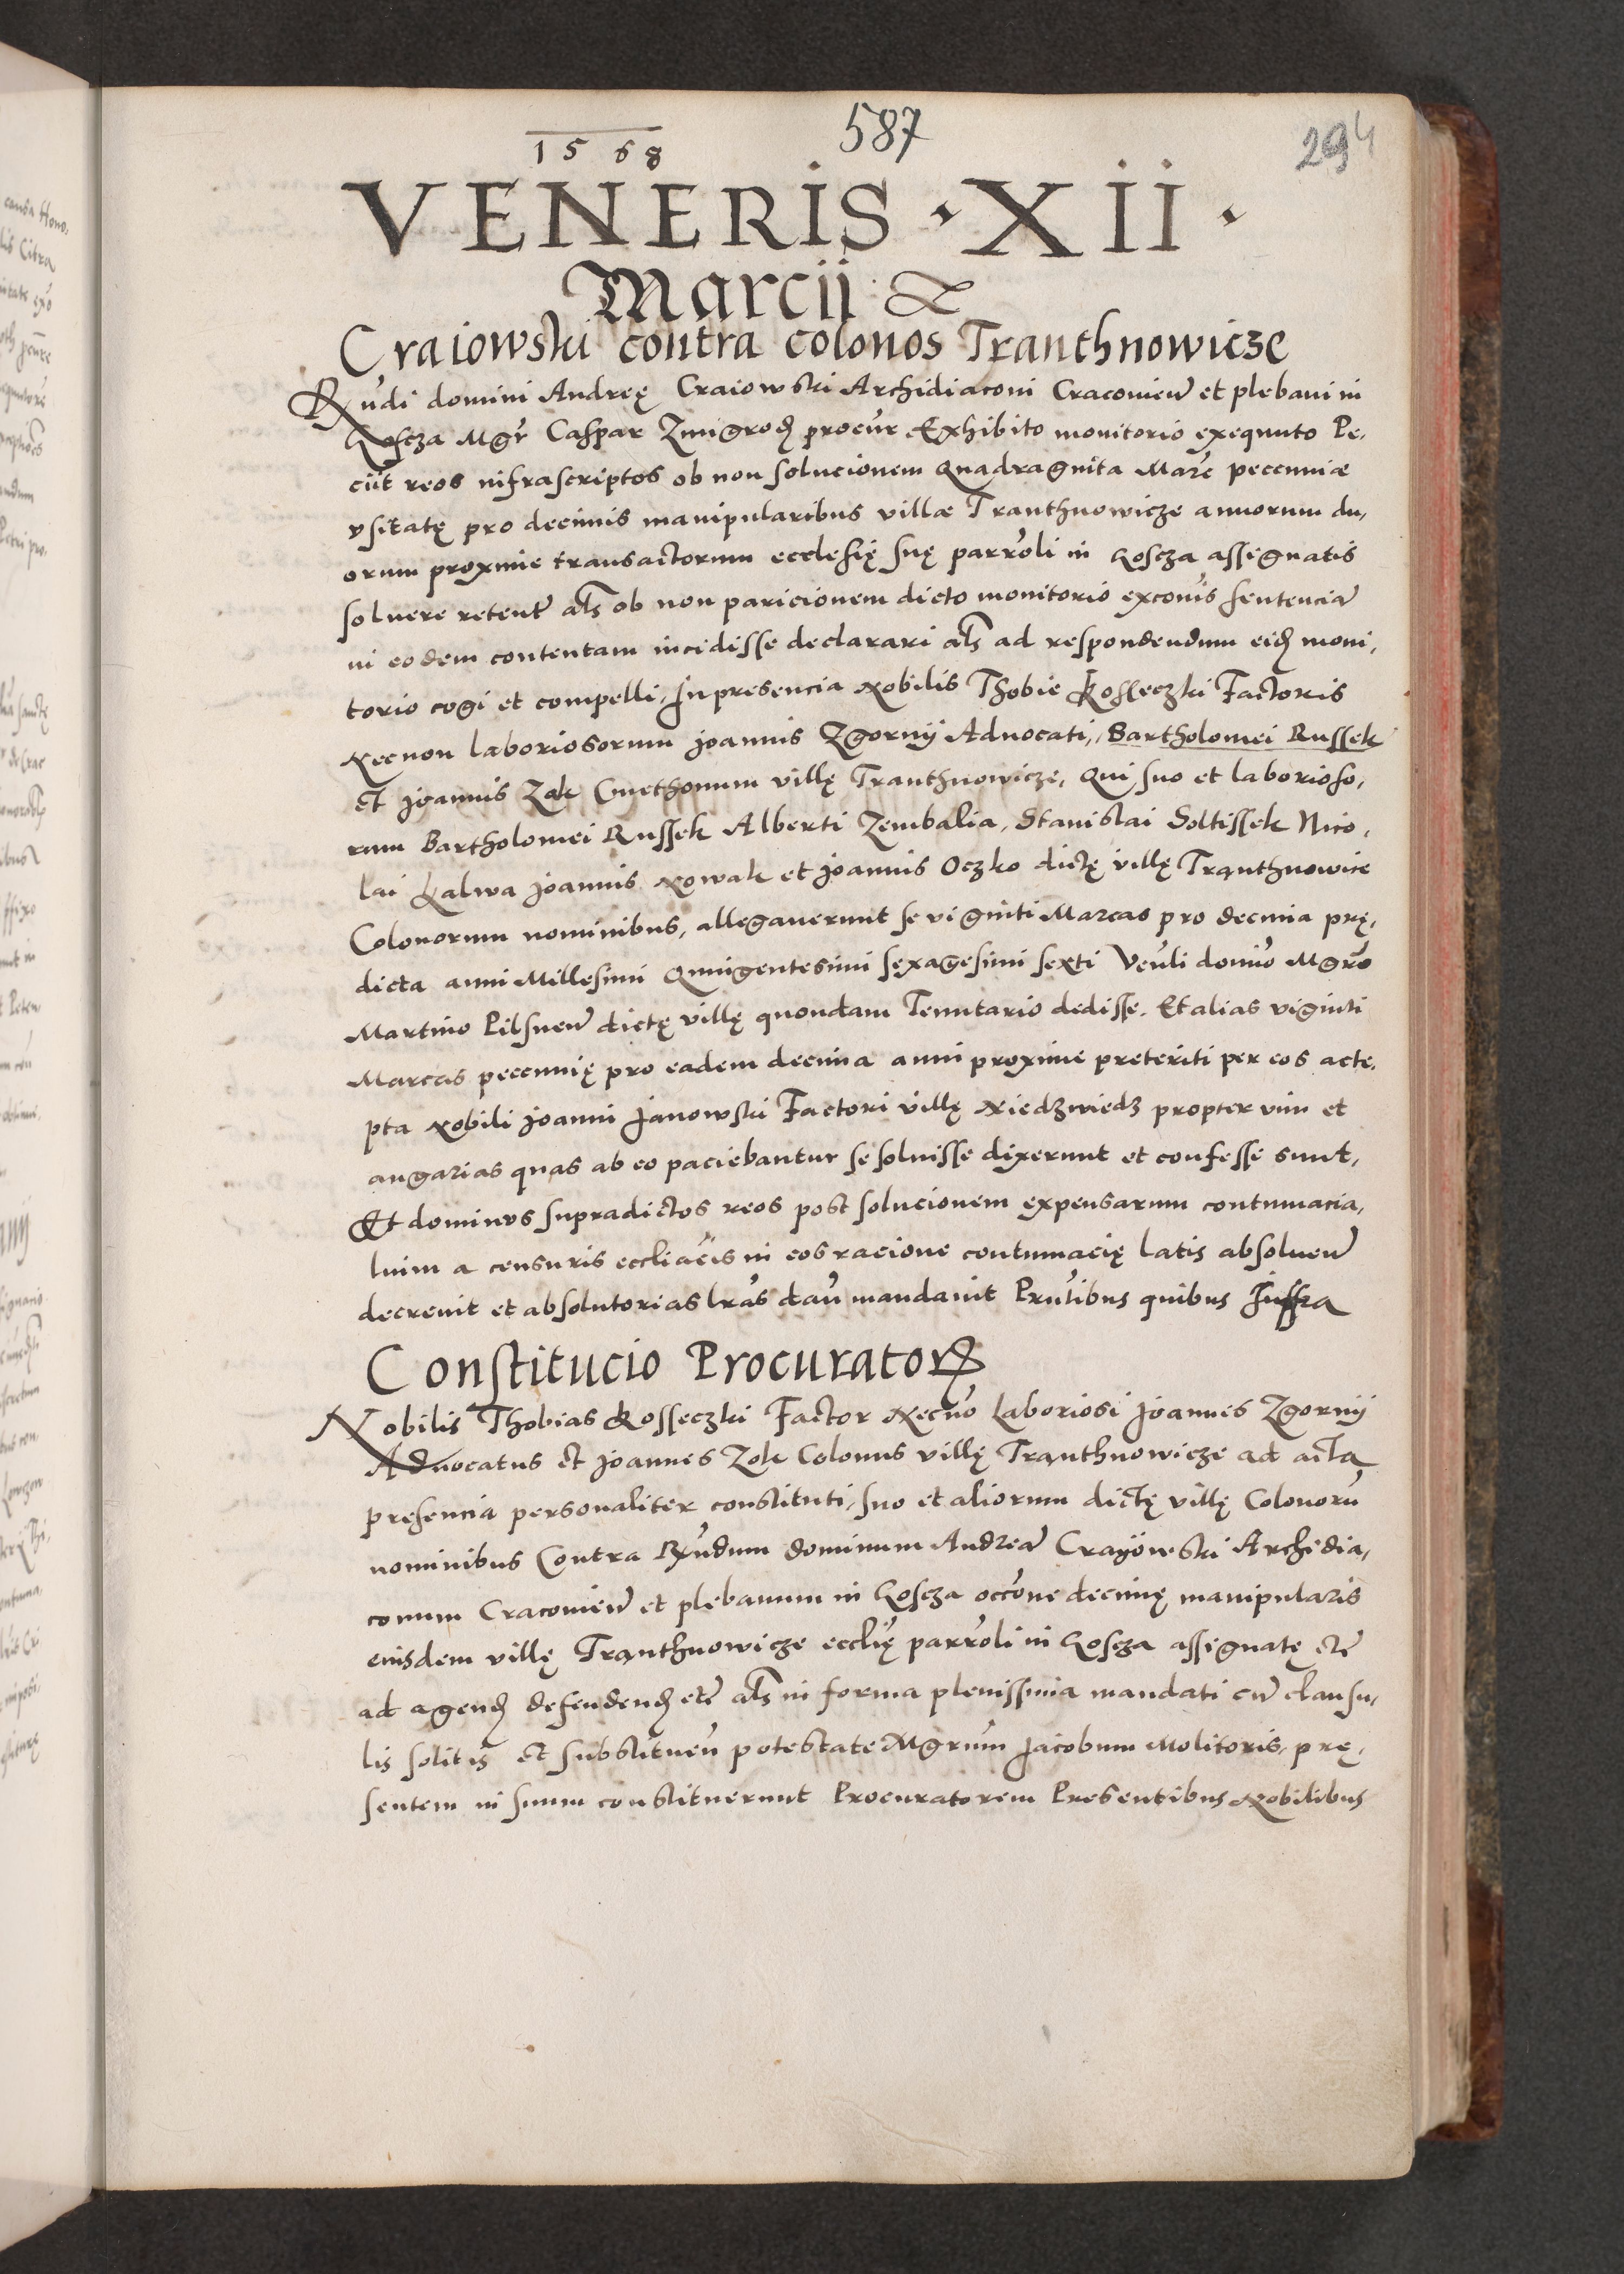 1568
587
294
VENERIS · XII ·
Marcii &
Craiowski contra colonos Tranthnowicze
Rn̄di domini Andreę Craiowski Archidiaconi Cracovien̄ et plebani in
Goscza Mgr̄ Caspar Zmigrod procur̄ Exhibito monitorio exequuto Pe,
ciit reos infrascriptos ob non solucionem Quadraginta Marc̄ peccuniæ
vsitatę pro decimis manipularibus villæ Tranthnowicze annorum du,
orum proxime transactorum ecclesię suę parr̄oli in Goscza assignatis
soluere retent̄ als̄ ob non paricionem dicto monitorio excōnis sentenciā
in eodem contentam incidisse declarari als̄ ad respondendum eid moni,
torio cogi et compelli, In presencia Nobilis Thobie Kosseczki Factoris
Necnon laboriosorum Joannis Zgornij Aduocati, Bartholomei Russek
et Joannis Zak Cmethonum villę Tranthnowicze, Qui suo et laborioso,
rum Bartholomei Russek Alberti Zembalia, Stanislai Soltissek Nico,
lai Kalwa Joannis Nowak et Joannis Oczko dictę villę Tranthnowice
Colonorum nominibus, allegauerunt se viginti Marcas pro decima prę,
dicta anni Millesimi Quingentesimi sexagesimi sexti Ven̄li domīo Mgrō
Martino Pilsnen̄ dictę villę quondam Tenutario dedisse. Et alias viginti
Marcas peccunię pro eadem decima anni proxime preteriti per eos acte,
pta Nobili Joanni Janowski Factori villę Niedzwiedz propter vim et
angarias quas ab eo paciebantur se soluisse dixerunt et confesse sunt,
Et dominus supradictos reos post solucionem expensarum contumacia,
luim a censuris eccliācis in eos racione contumacię latis absoluen̄
decreuit et absolutorias lrās dan̄ mandauit Prn̄tibus quibus Infra
Constitucio Procurator
Nobilis Thobias Kosseczki Factor Necnō Laboriosi Joannes Zgornij
Aduocatus et Joannes Zok Colonus villę Tranthnowicze ad acta
presencia personaliter constituti, suo et aliorum dictę villę Colonorū
nominibus Contra Rn̄dum dominum Andreā Crayowski Archidia,
conum Cracovien̄ et plebanum in Goscza occōne decimę manipularis
eiusdem villę Tranthnowicze ecclię parr̄oli in Goscza assignatę etc̄
ad agend defendend etc̄ als̄ in forma plenissima mandati cū clausu,
lis solitis et substituen̄ potestate Mgrūm Jacobum Molitoris, prę,
sentem in suum constituerunt Procuratorem Presentibus Nobilibus